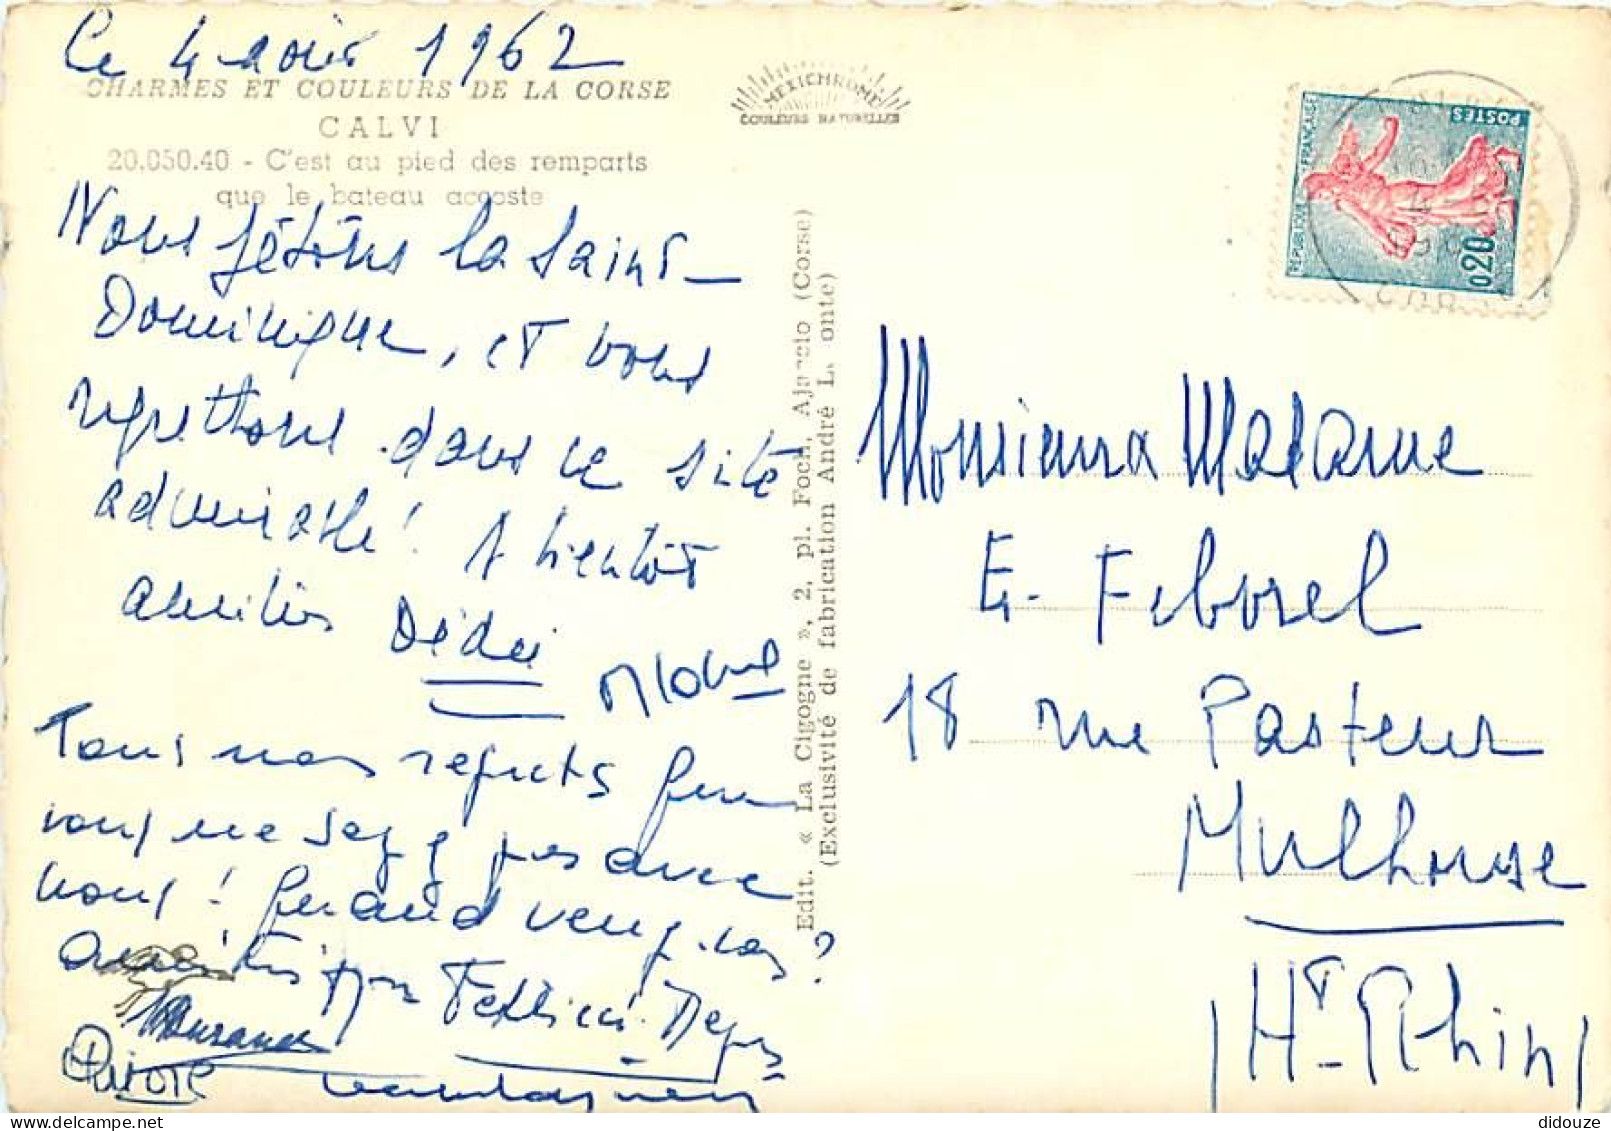 Le 4 août 1962
CHARMES ET COULEURS DE LA CORSE
CALVI
20.050.40 - C'est au pied des remparts
que le bateau accoste
Nous fêtons la Saint-
Dominique, et vous
regrettons dans ce site
admirable! A bientôt
amitiés Dédée
Tous nos regrets que
vous ne soyez pas avec
nous! Quand venez-vous?
amitiés
MEXICHROME
COULEURS NATURELLES
Edit. « La Cigogne », 2, pl. Foch, Ajaccio (Corse)
(Exclusivité de fabrication André Leconte)
REPUBLIQUE FRANÇAISE
POSTES
0,20
Monsieur Madame
E. Feborel
18 rue Pasteur
Mulhouse
(Ht-Rhin)
didouze